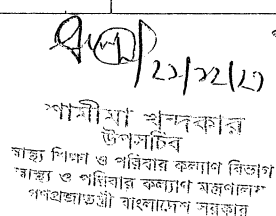 ২১/১২/২৩
শামীমা খন্দকার
উপসচিব
স্বাস্থ্য শিক্ষা ও পরিবার কল্যাণ বিভাগ
স্বাস্থ্য ও পরিবার কল্যাণ মন্ত্রণালয়
গণপ্রজাতন্ত্রী বাংলাদেশ সরকার